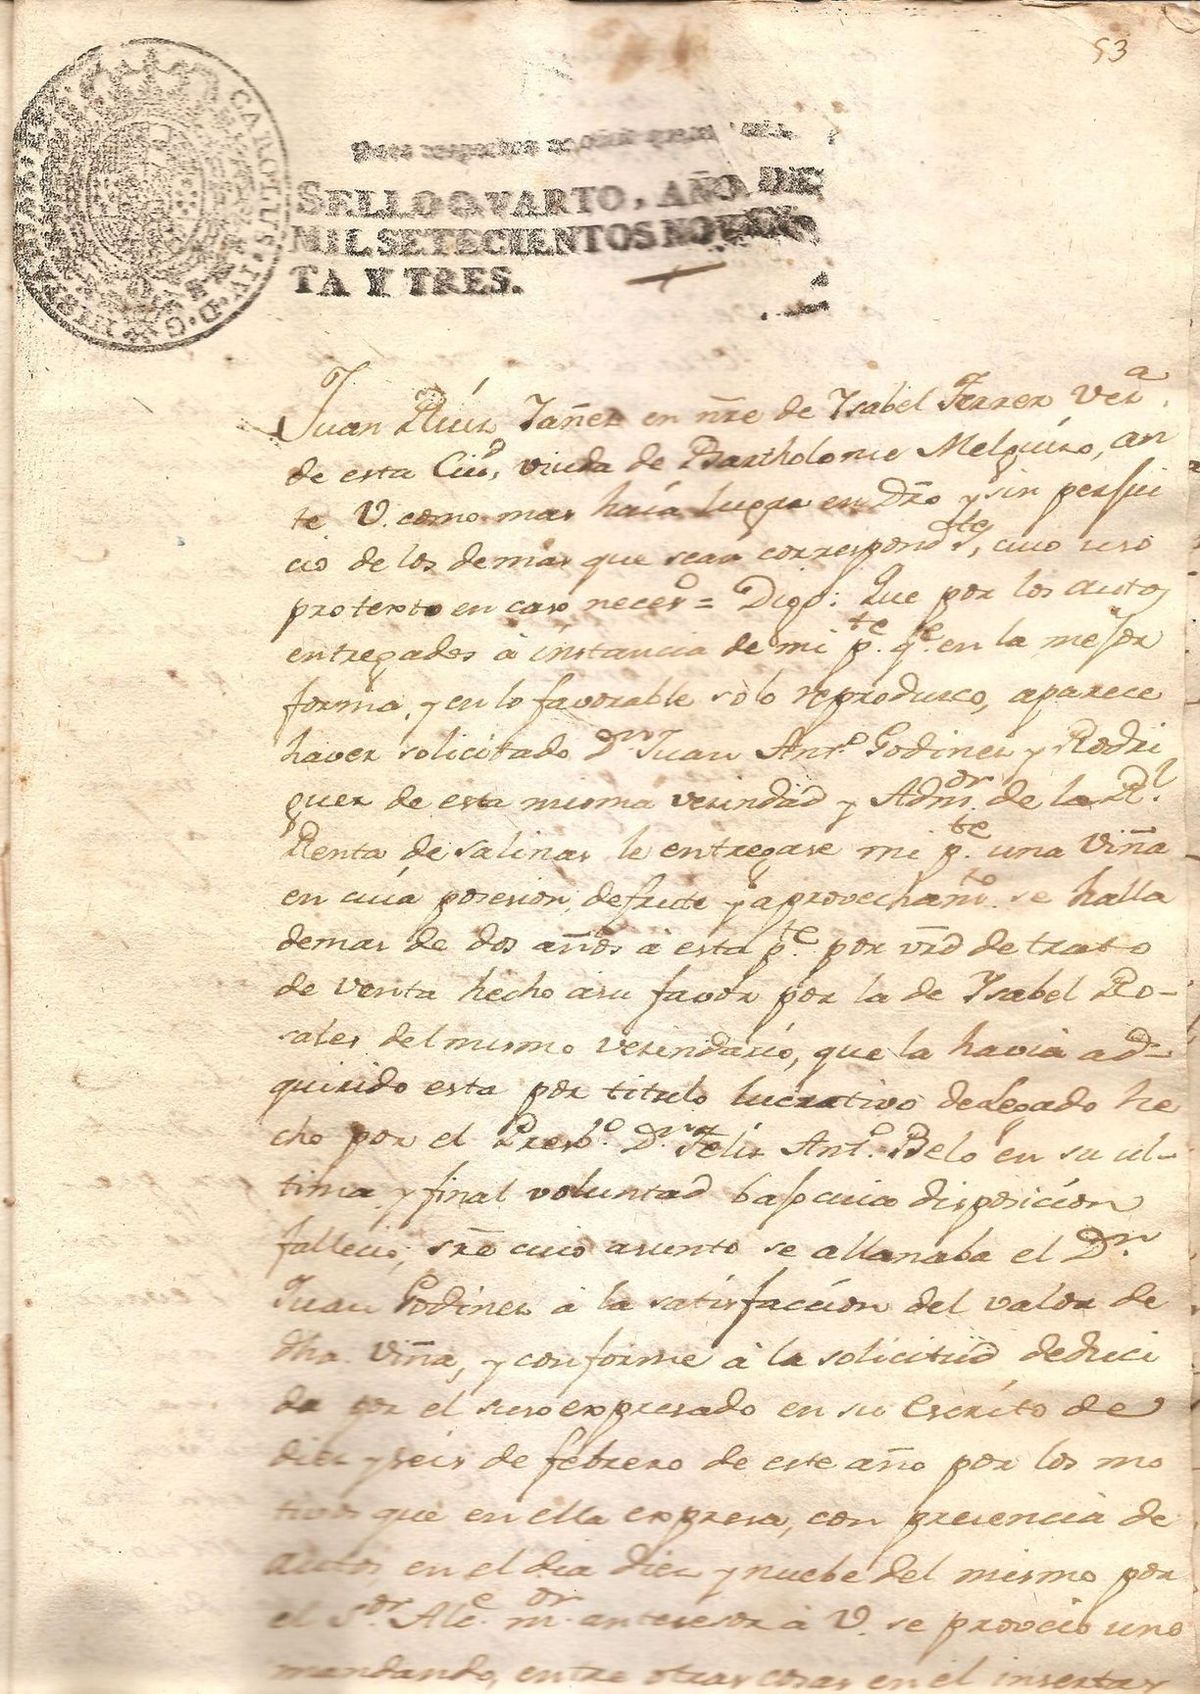 53
CAROLUS·IV·D·G·HISP
SELLO QVARTO, AÑO DE
MIL SETECIENTOS NOVEN
TA Y TRES.
Juan Rúiz Yañez en ñre de Ysabel Ferrer Vez.ª
de esta Ciu.d, viuda de Bartholome Melguizo, an
te V. como mas haia lugar en Dr̃o y sin perjui
cio de los demas que sean correspond.tes, cuio uso
protexto en caso neces.o = Digo: Que por los autos
entregados à instancia de mi p.te q.e en la mejor
forma, y en lo favorable solo reprodusco, aparece
haver solicitado D.n Juan Ant.o Godinez y Rodri
guez de esta misma vezindad y Adm.or de la R.l
Renta de Salinas le entregase mi p.te una Viña
en cuia posesion, desfrute y aprovecham.to se halla
demas de dos años à esta p.te por vrd de trato
de venta hecho asu favor por la de Ysabel Ro-
sales del mismo vezindario, que la havia ad-
quirido esta por titulo lucrativo de Legado he
cho por el Presb.o D.n Felix Ant.o Belo en su ul-
tima y final voluntad bajo cuia disposicion
fallecio; sr̃e cuio asunto se allanaba el D.n
Juan Godinez à la satisfaccion del valor de
dha Viña, y conforme à la solicitud deduci
da por el suso expresado en su Escrito de
diez y seis de febrero de este año por los mo
tivos que en ella expresa, con precencia de
autos, en el dia diez y nuebe del mismo por
el S.or Alc.e m.or antecesor à V. se proveio uno
mandando, entre otras cosas en el insertas